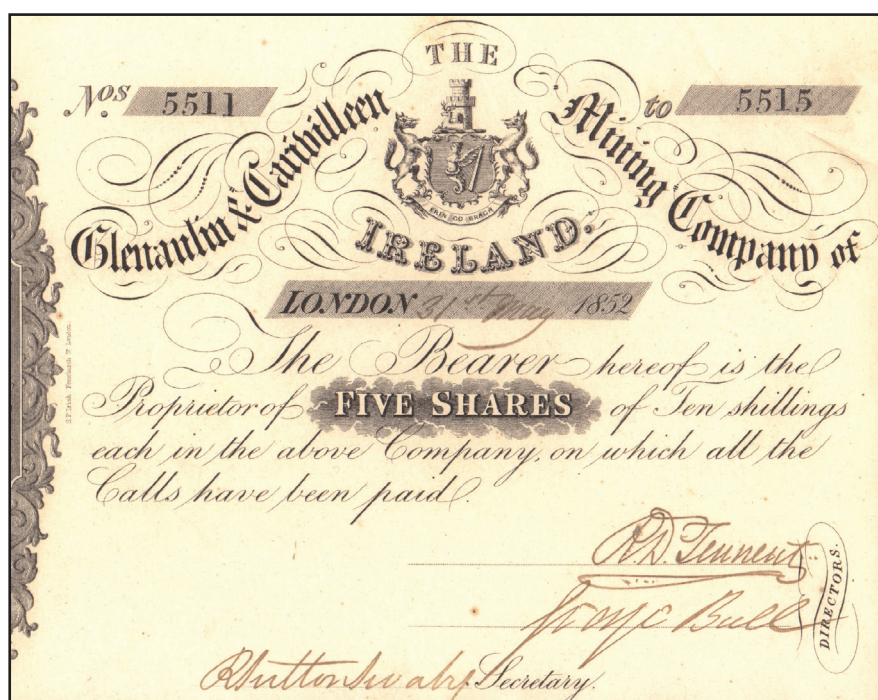 THE
Nos 5511 to 5515
Glenaulin & Carivilleen Mining Company of
ERIN GO BRAGH
IRELAND.
LONDON 31st May 1852
The Bearer hereof is the
Proprietor of FIVE SHARES of Ten shillings
each in the above Company, on which all the
Calls have been paid.
R.D. Tennent
George Bull
DIRECTORS.
Secretary.